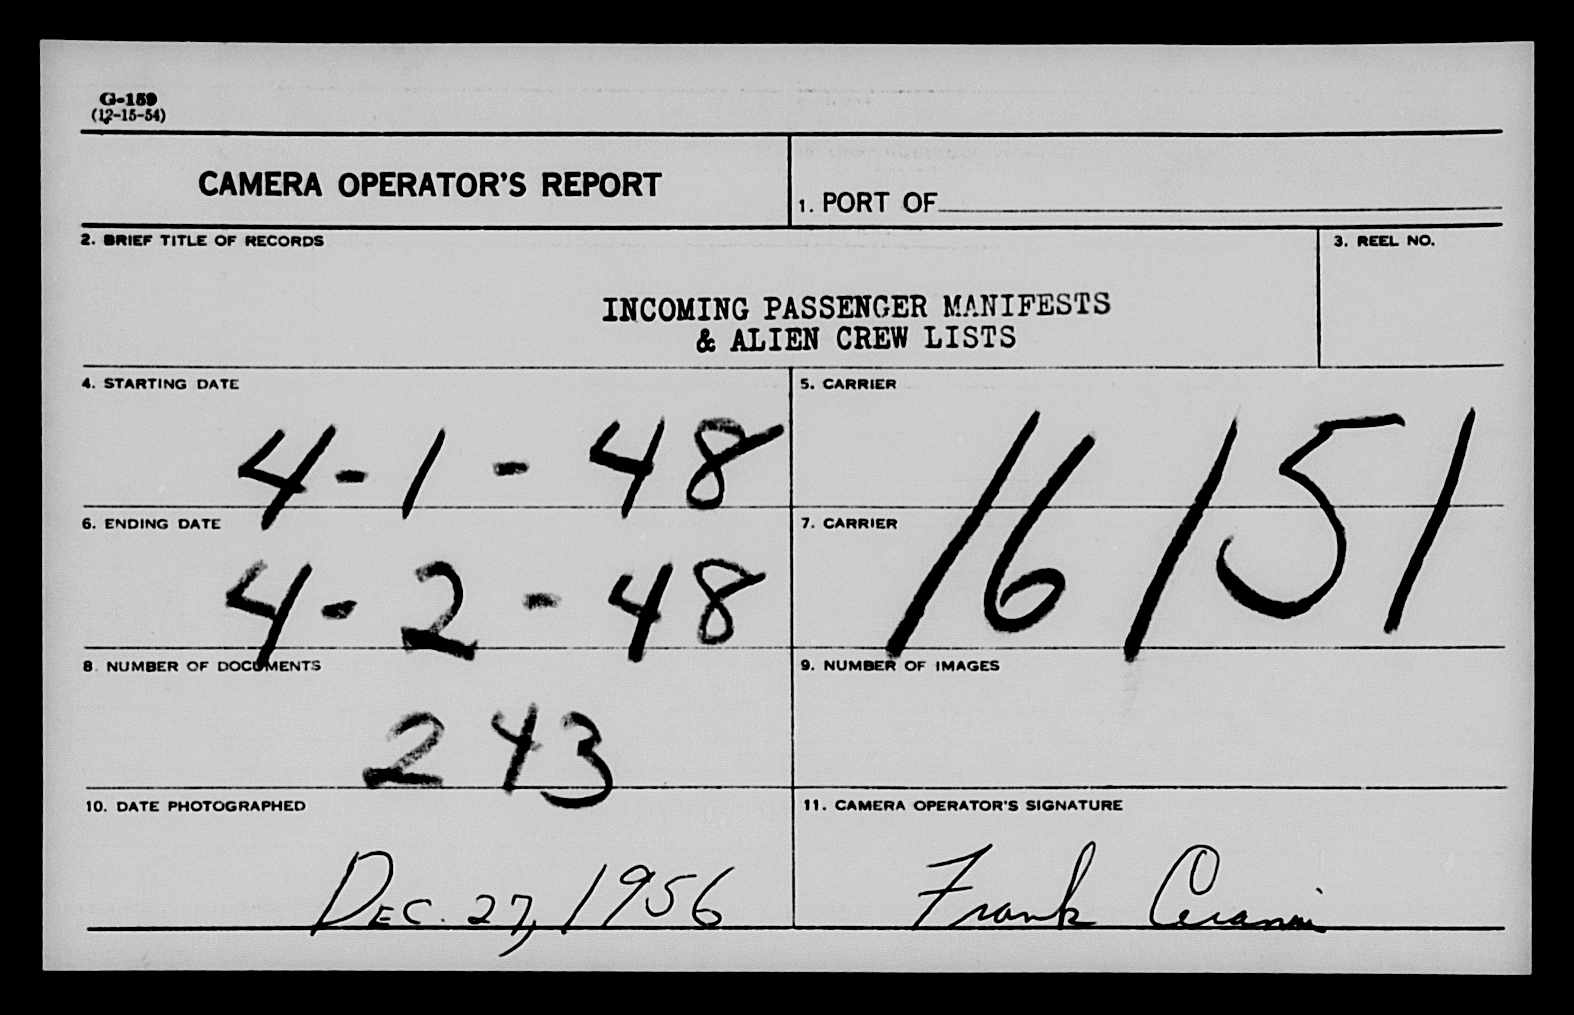 G-159
(12-15-54)
CAMERA OPERATOR'S REPORT
1. PORT OF
2. BRIEF TITLE OF RECORDS
3. REEL NO.
INCOMING PASSENGER MANIFESTS
& ALIEN CREW LISTS
4. STARTING DATE
4-1-48
5. CARRIER
16151
6. ENDING DATE
4-2-48
7. CARRIER
8. NUMBER OF DOCUMENTS
243
9. NUMBER OF IMAGES
10. DATE PHOTOGRAPHED
DEC. 27, 1956
11. CAMERA OPERATOR'S SIGNATURE
Frank